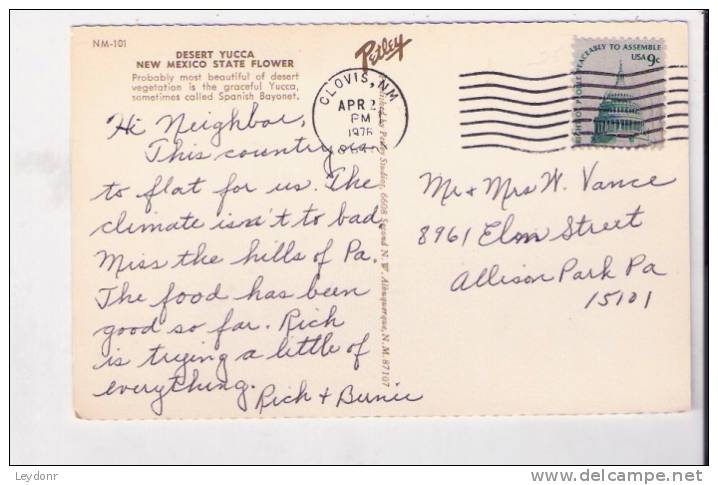 NM-101
DESERT YUCCA
NEW MEXICO STATE FLOWER
Probably most beautiful of desert
vegetation is the graceful Yucca,
sometimes called Spanish Bayonet.
Petley
CLOVIS, NM
APR 2
PM
1976
PEACEABLY TO ASSEMBLE
USA 9c
Hi Neighbor,
This country is
to flat for us. The
climate isn't to bad.
Miss the hills of Pa.
The food has been
good so far. Rich
is trying a little of
everything.
Rich + Bernie
Published by Petley Studios, 6608 Second N. W. Albuquerque, N. M. 87107
Mr + Mrs W. Vance
8961 Elm Street
Allison Park Pa
15101
Leydonr
www.delcampe.net